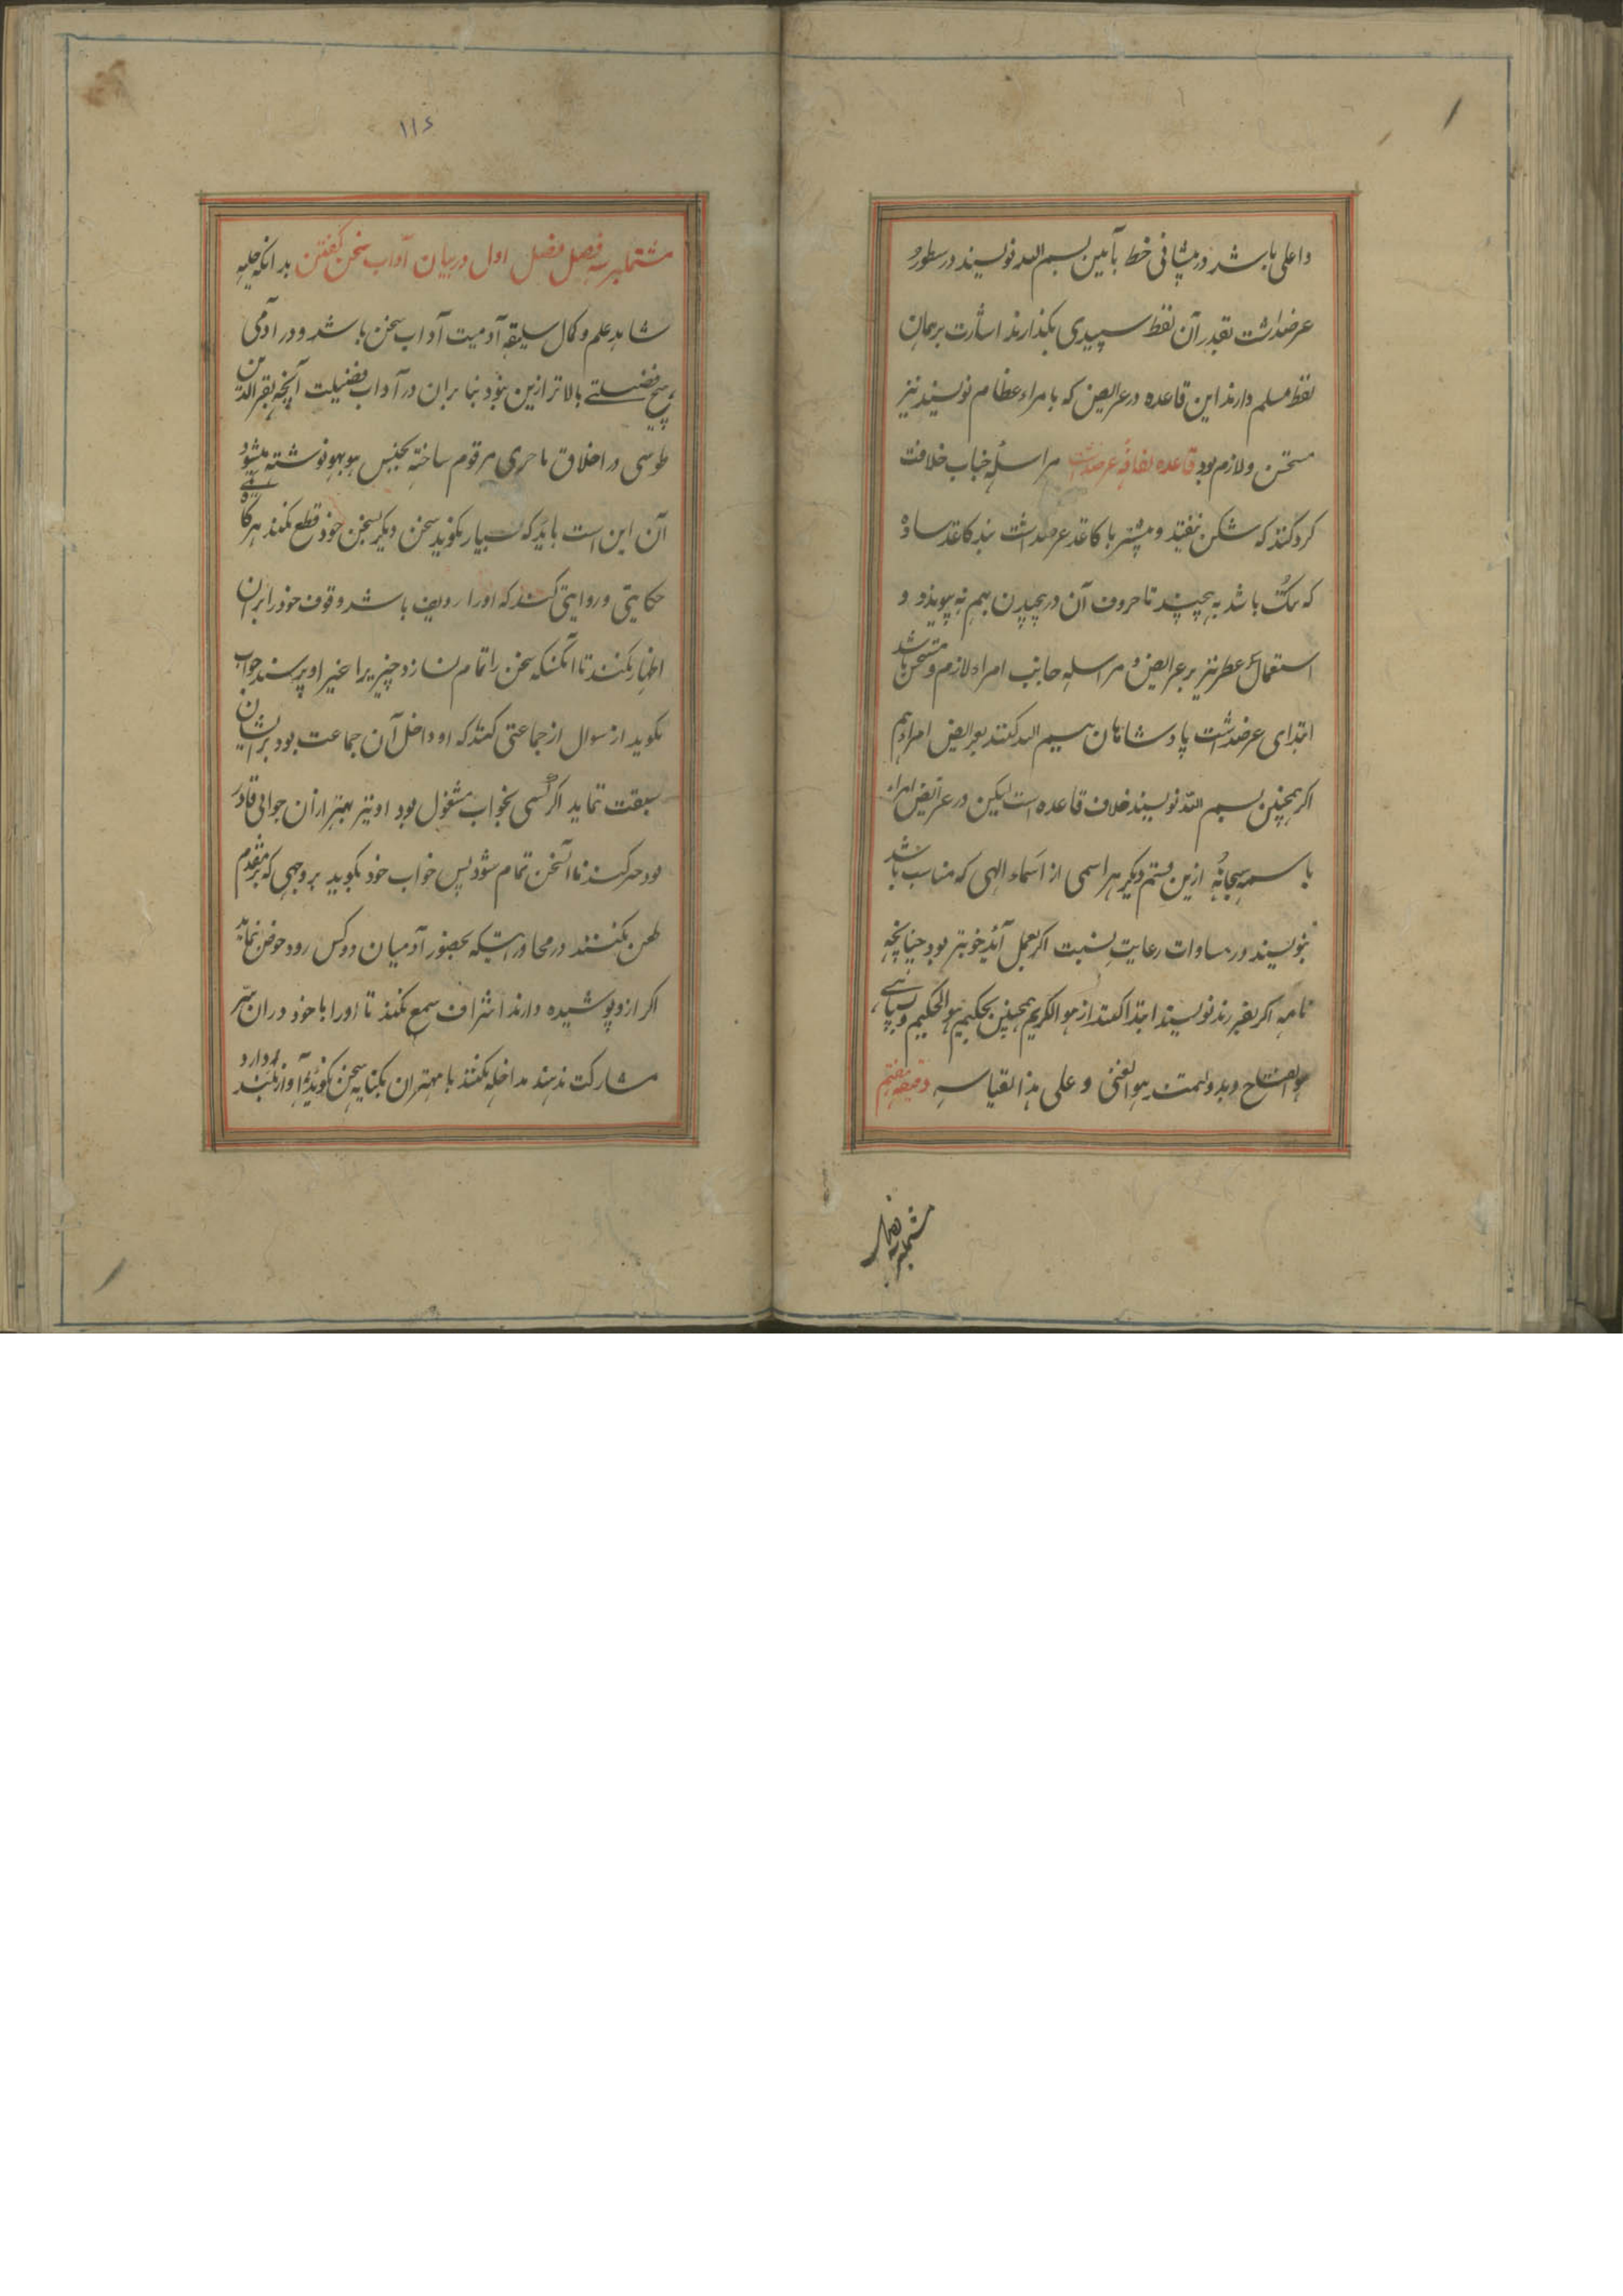 و اعلی باشد در پیشانی خط بآیین بسم الله نویسند در سطور
عرضداشت بقدر آن لفظ سپیدی بگذارند اشارت بر همان
لفظ مسلم دارند این قاعده در عرایض که بامراء عظام نویسند نیز
مستحسن و لازم بود قاعده لفافهٔ عرضداشت مراسلهٔ جناب خلافت
گرد کنند که شکن نیفتد و پیشتر با کاغذ عرضداشت بند کاغذ ساده
که تنک باشد به پیچند تا حروف آن در پیچیدن بهم نه پیوندد و
استعمال عطر نیز بر عرایض و مراسله جانب امراء لازم و مستحسن باشد
ابتدای عرضداشت پادشاهان بسم الله کنند بعرایض امراء هم
اگر همچنین بسم الله نویسند خلاف قاعده است لیکن در عرایض امراء
باسمه سبحانه ازین قسم دیگر هر اسمی از اسماء الهی که مناسب باشد
بنویسند در مساوات رعایت نسبت اگر بعمل آید خوبتر بود چنانچه
نامه اگر بفرزند نویسند ابتدا کنند از هو الکریم همچنین بحکیم هو الحکیم و بسپاهی
هو الفتاح و بدولتمند هو الغنی و علی هذا القیاس دقیقه هفتم
مشتملبر سه فصل
۱۱۶
مشتملبر سه فصل فصل اول در بیان آداب سخن گفتن بدانکه حلیه
شاهد علم و کمال سلیقه آدمیت آداب سخن باشد و در آدمی
هیچ فضیلتے بالاتر ازین نبود بنابران در آداب فضیلت آنچه نصیر الدین
طوسی در اخلاق ناصری مرقوم ساخته بجنس هو بهو نوشته میشود
آن این است باید که بسیار نگوید سخن دیگر بسخن خود قطع نکند هرگاه
حکایتی و روایتی کنند که او را وقوف باشد وقوف خود را بران
اظهار نکند تا آنکس که سخن را تمام نسازد و چیزیرا غیر او پرسند جواب
نگوید از سوال از جماعتی کنند که او داخل آن جماعت بود بر ایشان
سبقت نماید اگر کسی بجواب مشغول بود او نیز بهتر ازان جوابی قادر
بود صبر کند تا آن سخن تمام شود پس جواب خود بگوید بر وجهی که بر متقدم
طعن نکنند در محاورتیکه بحضور آدمیان دو کس رود خوض ننماید
اگر ازو پوشیده دارند استراق سمع نکند تا او را با خود دران سر
مشارکت ندهند مداخله نکند با مهتران بکنایه سخن گوید آواز بلند